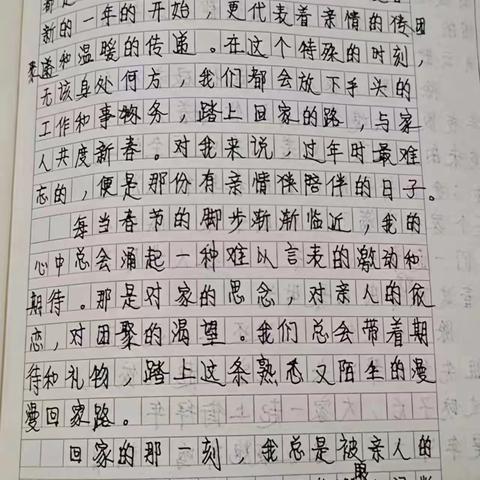 新的一年的开始，更代表着亲情的传团
聚递和温暖的传递。在这个特殊的时刻，
无该身处何方，我们都会放下手头的
工作和事物务，踏上回家的路，与家
人共度新春。对我来说，过年时最难
忘的，便是那份有亲情伴陪伴的日子。
每当春节的脚步渐渐临近，我的
心中总会涌起一种难以言表的激动和
期待。那是对家的思念，对亲人的依
恋，对团聚的渴望。我们总会带着期
待和礼物，踏上这条熟悉又陌生的漫
漫回家路。
回家的那一刻，我总是被亲人的